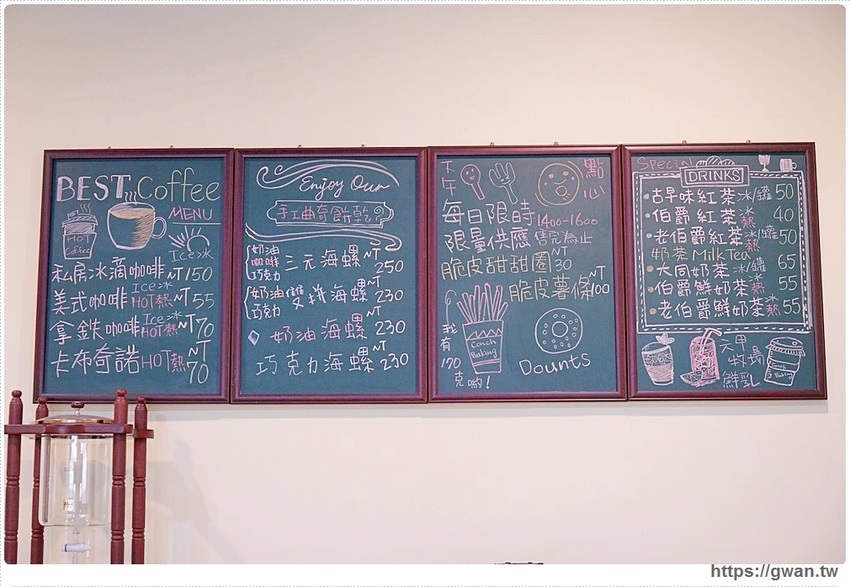 BEST Coffee
MENU
HOT
Coffee
Ice冰
私房冰滴咖啡 NT150
美式咖啡 Ice冰 HOT熱 NT55
拿鉄咖啡 Ice冰 HOT熱 NT70
卡布奇諾 HOT熱 NT70
Enjoy Our
手工曲奇餅乾
奶油 咖啡 巧克力 三元海螺 NT250
奶油 巧克力 雙拼海螺 NT230
奶油海螺 NT230
巧克力海螺 NT230
下午點心
每日限時 1400-1600
限量供應 售完為止
脆皮甜甜圈 NT30
脆皮薯條 NT100
我有170克喲!
Conch
Baking
Dounts
Special
DRINKS
古早味紅茶 冰/罐 50
伯爵紅茶 冰熱 40
老伯爵紅茶 冰/罐 熱 50
奶茶 Milk Tea
大同奶茶 冰/罐 65
伯爵鮮奶茶 冰熱 55
老伯爵鮮奶茶 冰熱 55
牧場
鮮乳
https://gwan.tw